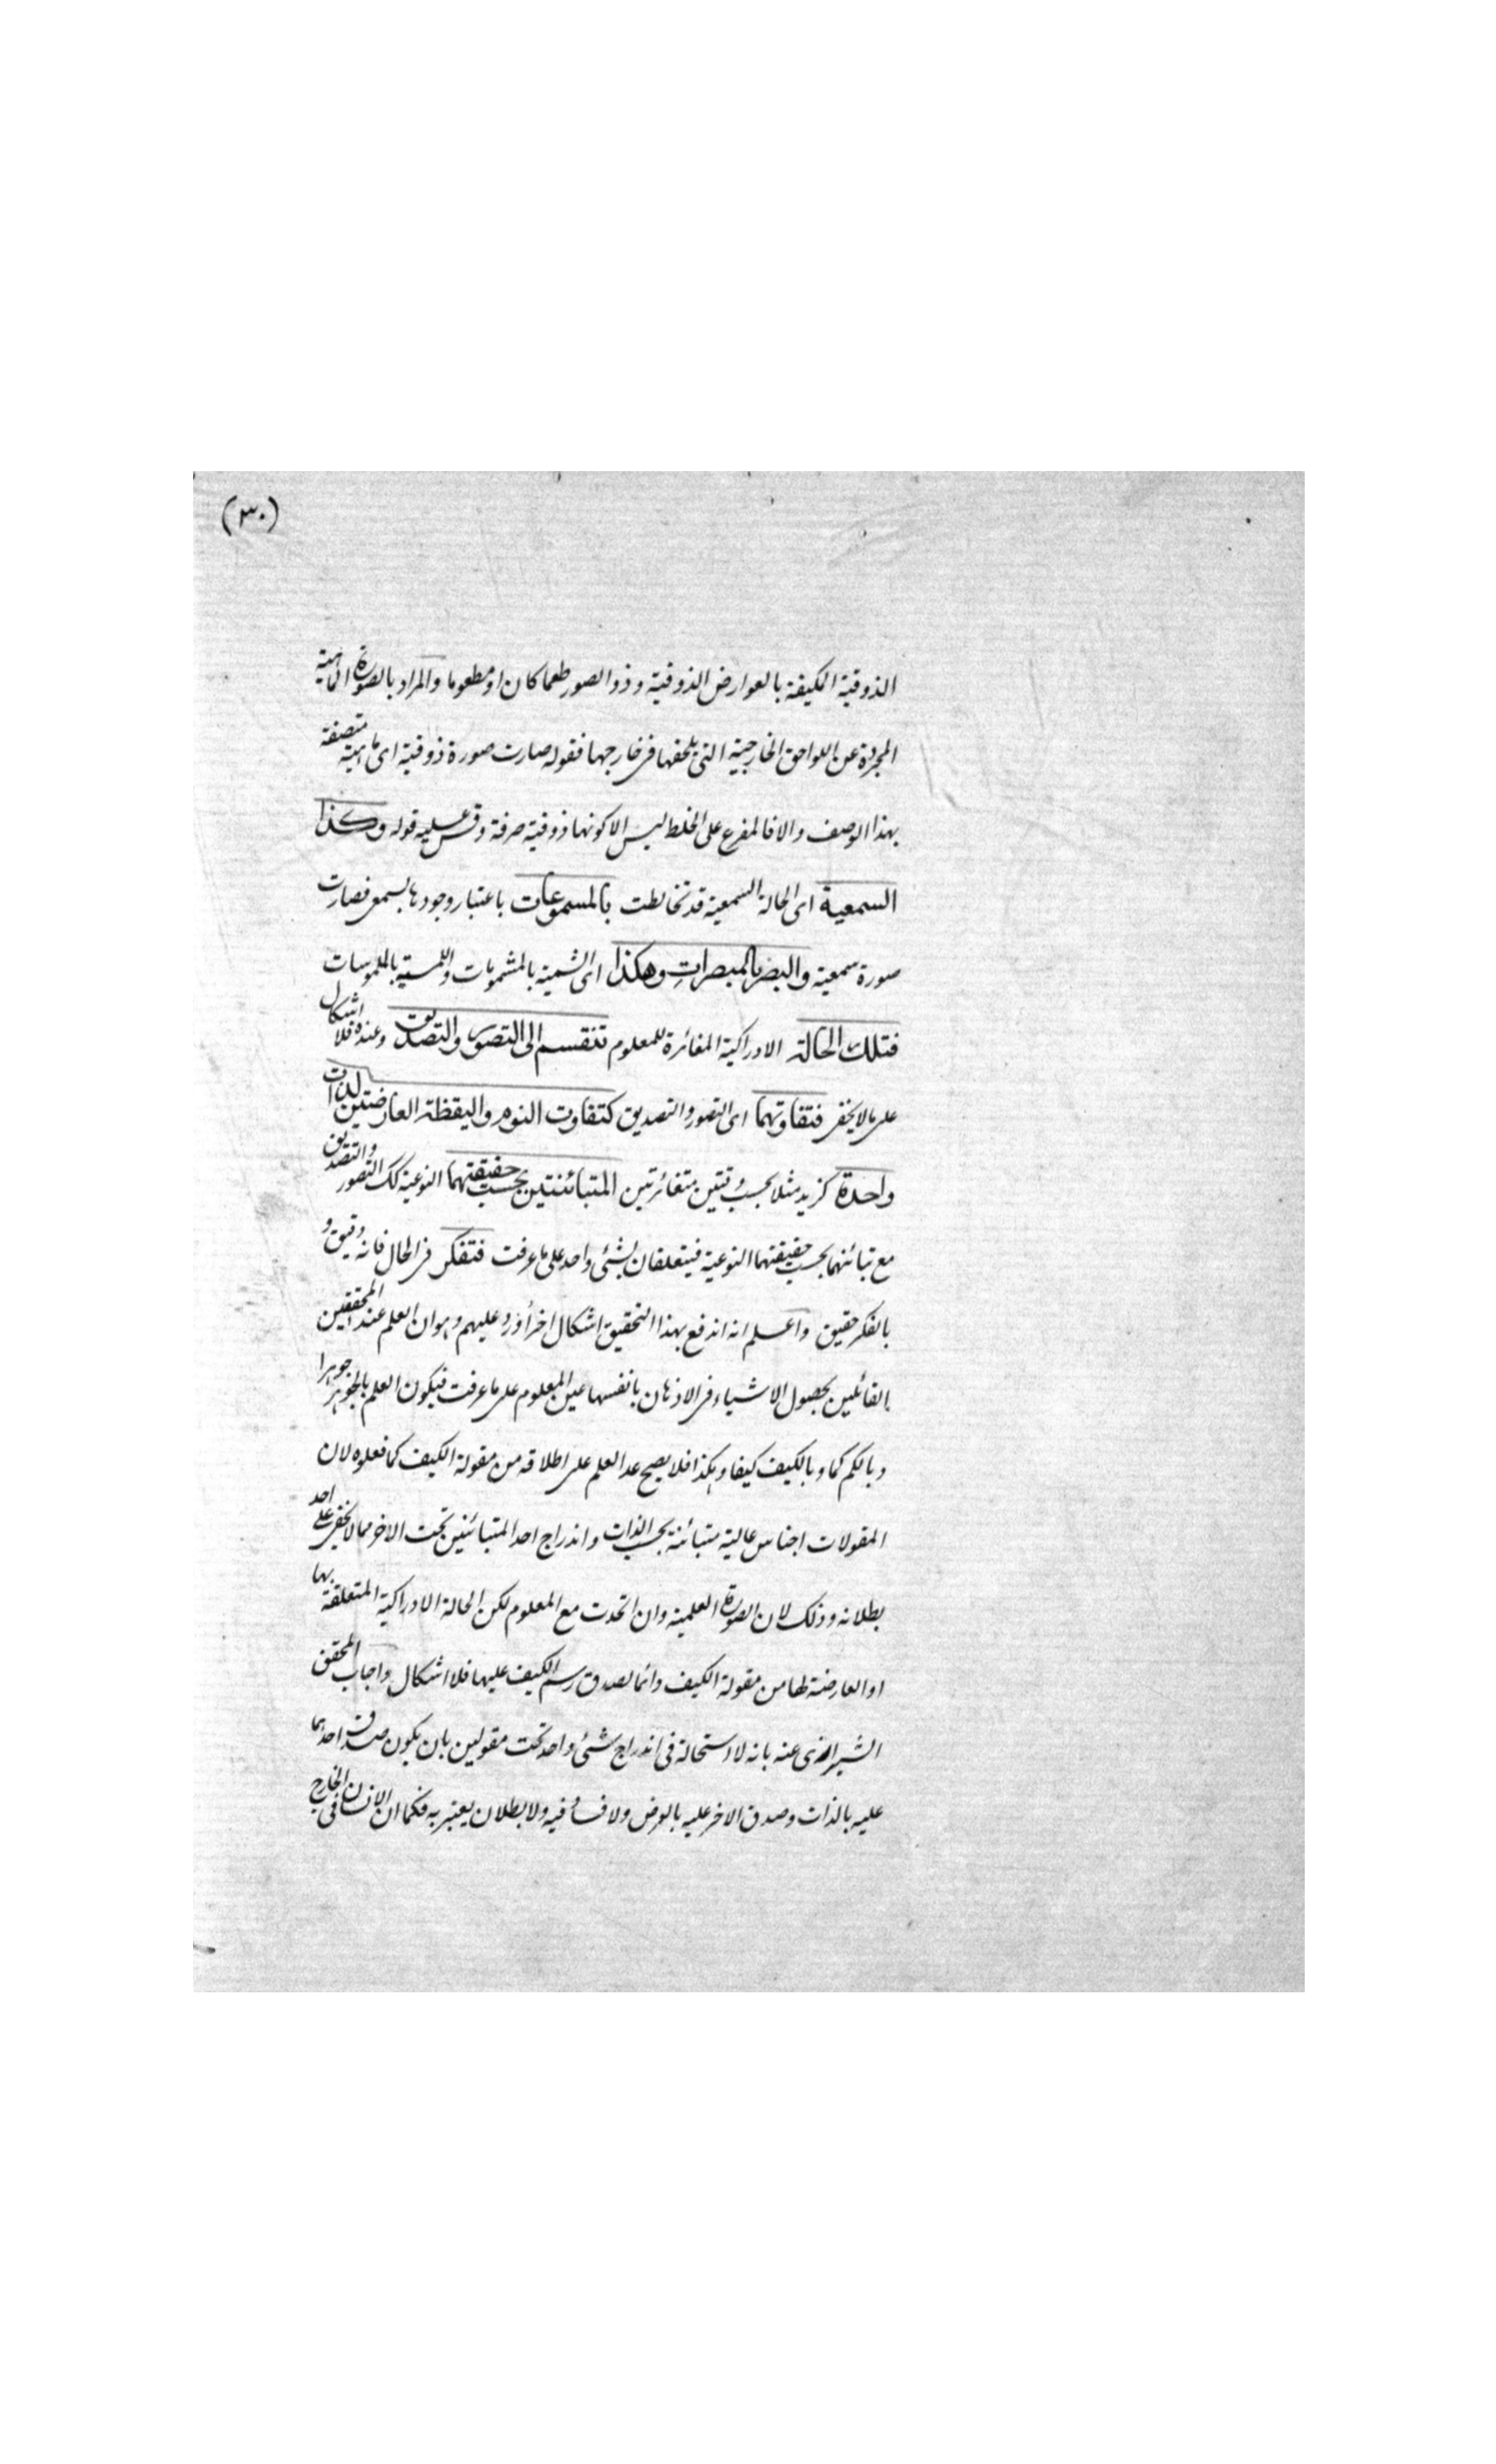 (٣٠)
الذوقية الكيفة بالعوارض الذوقية وذو الصور طعما كان او مطعوما والمراد بالصورة الماهية
المجردة عن اللواحق الخارجية التى يلحقها فى خارجها فقوله صارت صورة ذوقية اى ماهية متصفة
بهذا الوصف والا فالمفرع على الخلط ليس الا كونها ذوقية صرفة وقس عليه قوله وكذا
السمعية اى الحالة السمعية قد تخالطت بالمسموعات باعتبار وجودها بسمعى فصارت
صورة سمعية والبصر بالمبصرات وهكذا اى الشمية بالمشمومات واللمسية بالملموسات
فتلك الحالة الادراكية المغائرة للمعلوم تنقسم الى التصور والتصديق وعنده فلا اشكال
على ما لا يخفى فتفاوتهما اى التصور والتصديق كتفاوت النوم واليقظة العارضتين لذات
واحدة كزيد مثلا بحسب وقتين متغائرتين المتبائنتين بحسب حقيقتهما النوعية كك التصور والتصديق
مع تبائنهما بحسب حقيقتهما النوعية فيتعلقان بشئ واحد على ما عرفت فتفكر فى الحال فانه دقيق و
بالفكر حقيق واعلم انه اندفع بهذا التحقيق اشكال اخر أورد عليهم وهو ان العلم عند المحققين
القائلين بحصول الاشياء فى الاذهان بانفسها عين المعلوم على ما عرفت فيكون العلم بالجوهر جوهرا
وبالكم كما وبالكيف كيفا وهكذا فلا يصح عد العلم على اطلاقه من مقولة الكيف كما فعلوه لان
المقولات اجناس عالية متبائنة بحسب الذات واندراج احد المتبائنين تحت الاخر مما لا يخفى على احد
بطلانه وذلك لان الصورة العلمية وان اتحدت مع المعلوم لكن الحالة الادراكية المتعلقة بها
او العارضة لها من مقولة الكيف دائما لصدق رسم الكيف عليها فلا اشكال واجاب المحقق
الشيرازى عنه بانه لا استحالة فى اندراج شئ واحد تحت مقولين بان يكون صدق احدهما
عليه بالذات وصدق الاخر عليه بالعرض ولا فساد فيه ولا بطلان يعتبر به فكما ان الانسان فى الخارج